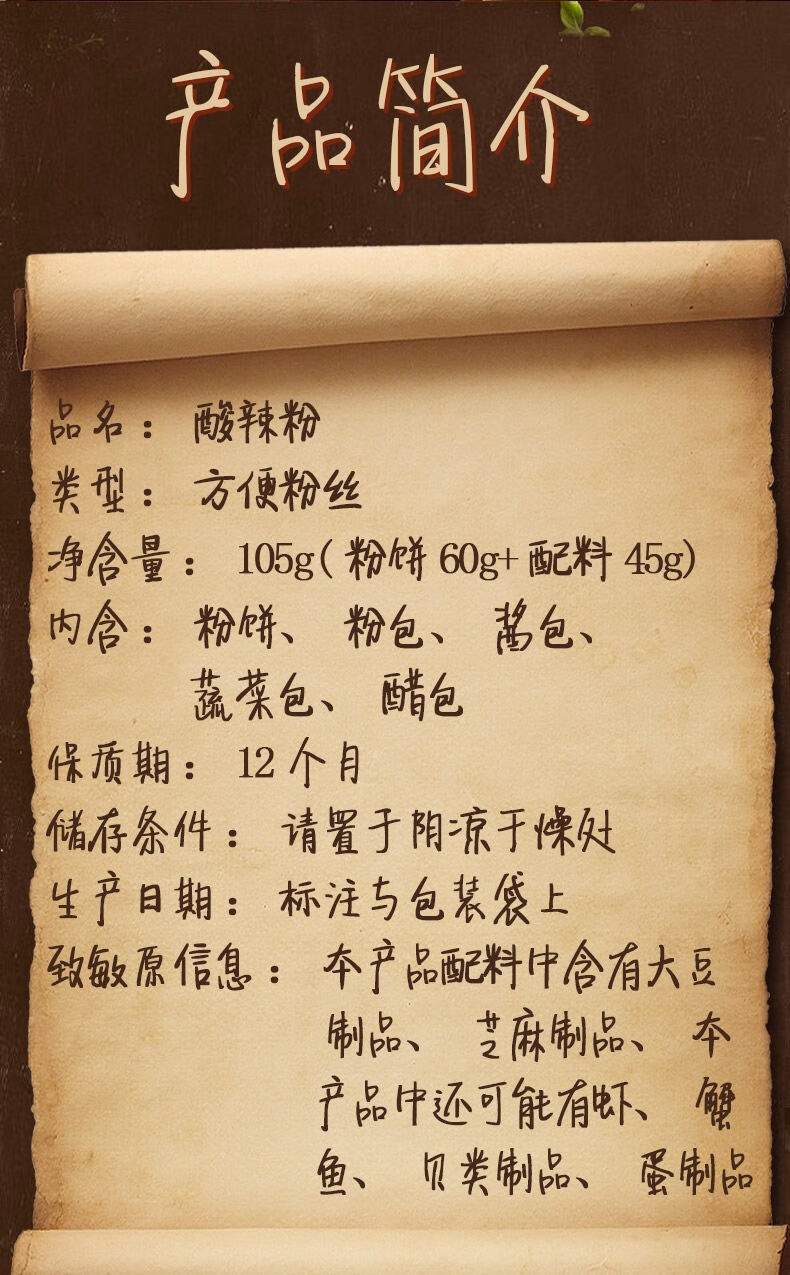 产品简介
品名：酸辣粉
类型：方便粉丝
净含量：105g(粉饼60g+配料45g)
内含：粉饼、粉包、酱包、
蔬菜包、醋包
保质期：12个月
储存条件：请置于阴凉干燥处
生产日期：标注与包装袋上
致敏原信息：本产品配料中含有大豆
制品、芝麻制品、本
产品中还可能有虾、蟹
鱼、贝类制品、蛋制品